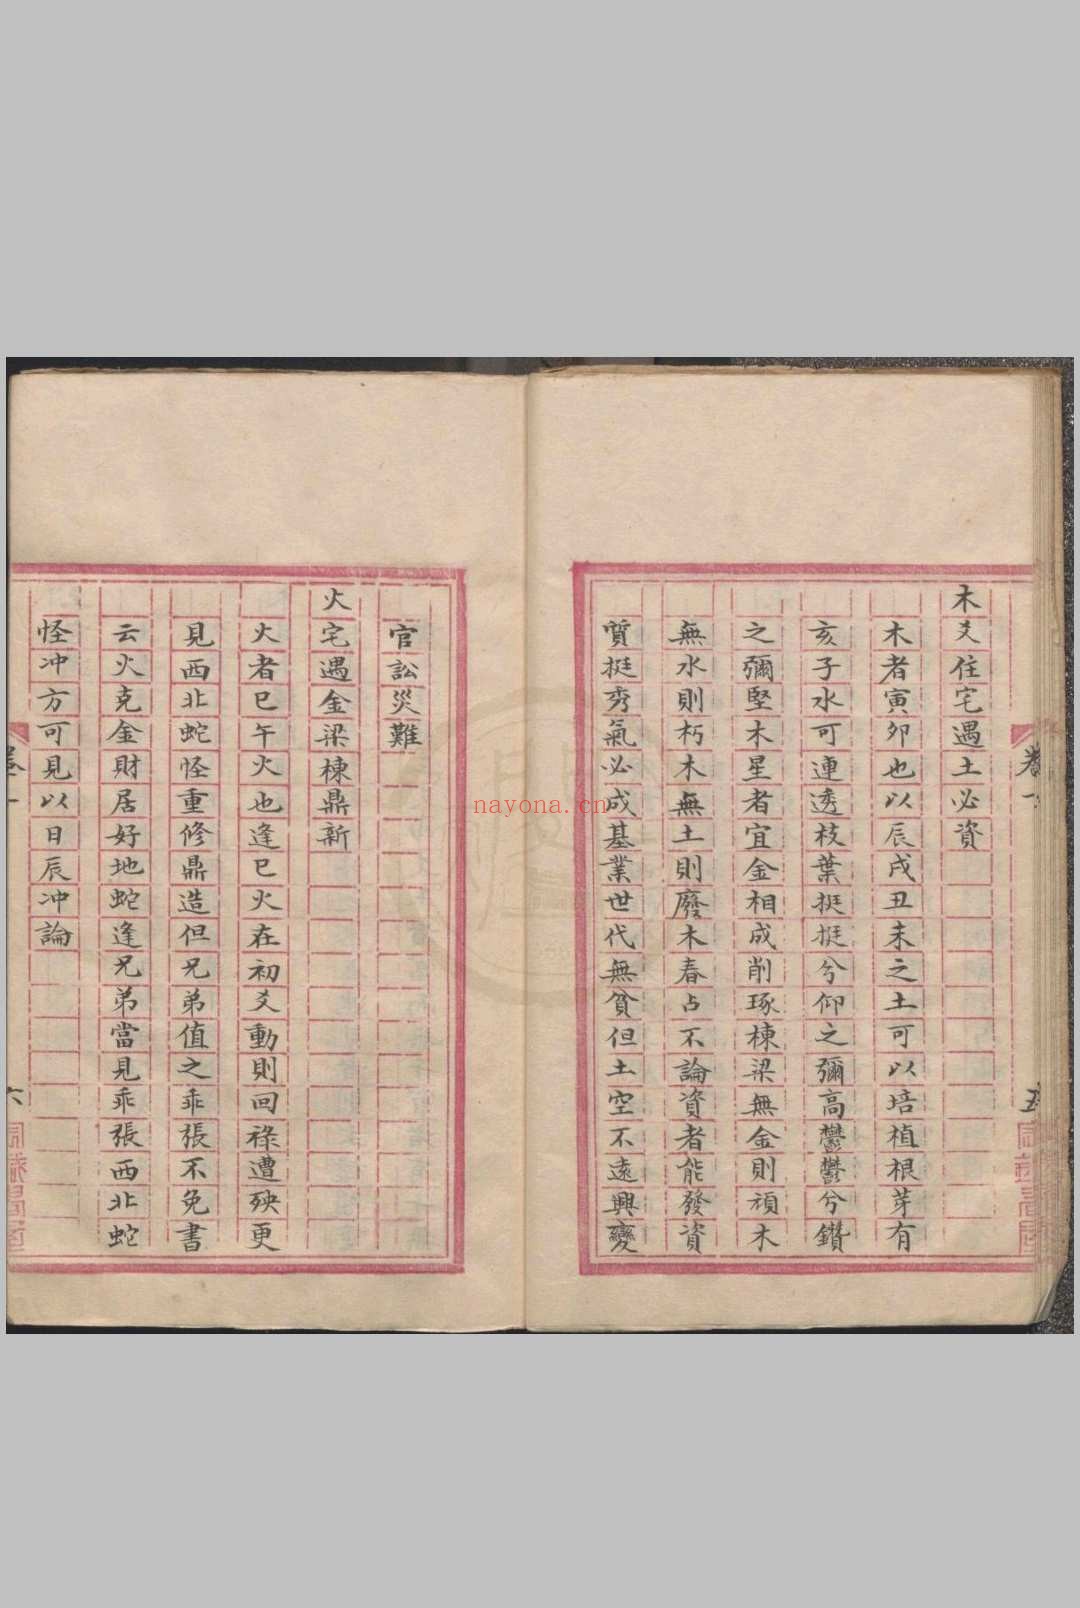 木爻住宅遇土必資
木者寅卯也以辰戌丑未之土可以培植根芽有
亥子水可連透枝葉挺挺兮仰之彌高鬱鬱兮鑽
之彌堅木星者宜金相成削琢棟梁無金則頑木
無水則朽木無土則廢木春占不論資者能發資
質挺秀氣必成基業世代無貧但土空不遠興變
官訟災難
火宅遇金梁棟鼎新
火者巳午火也逢巳火在初爻動則回祿遭殃更
見西北蛇怪重修鼎造但兄弟值之乖張不免書
云火克金財居好地蛇逢兄弟當見乖張西北蛇
怪冲方可見以日辰冲論
六
nayona.cn